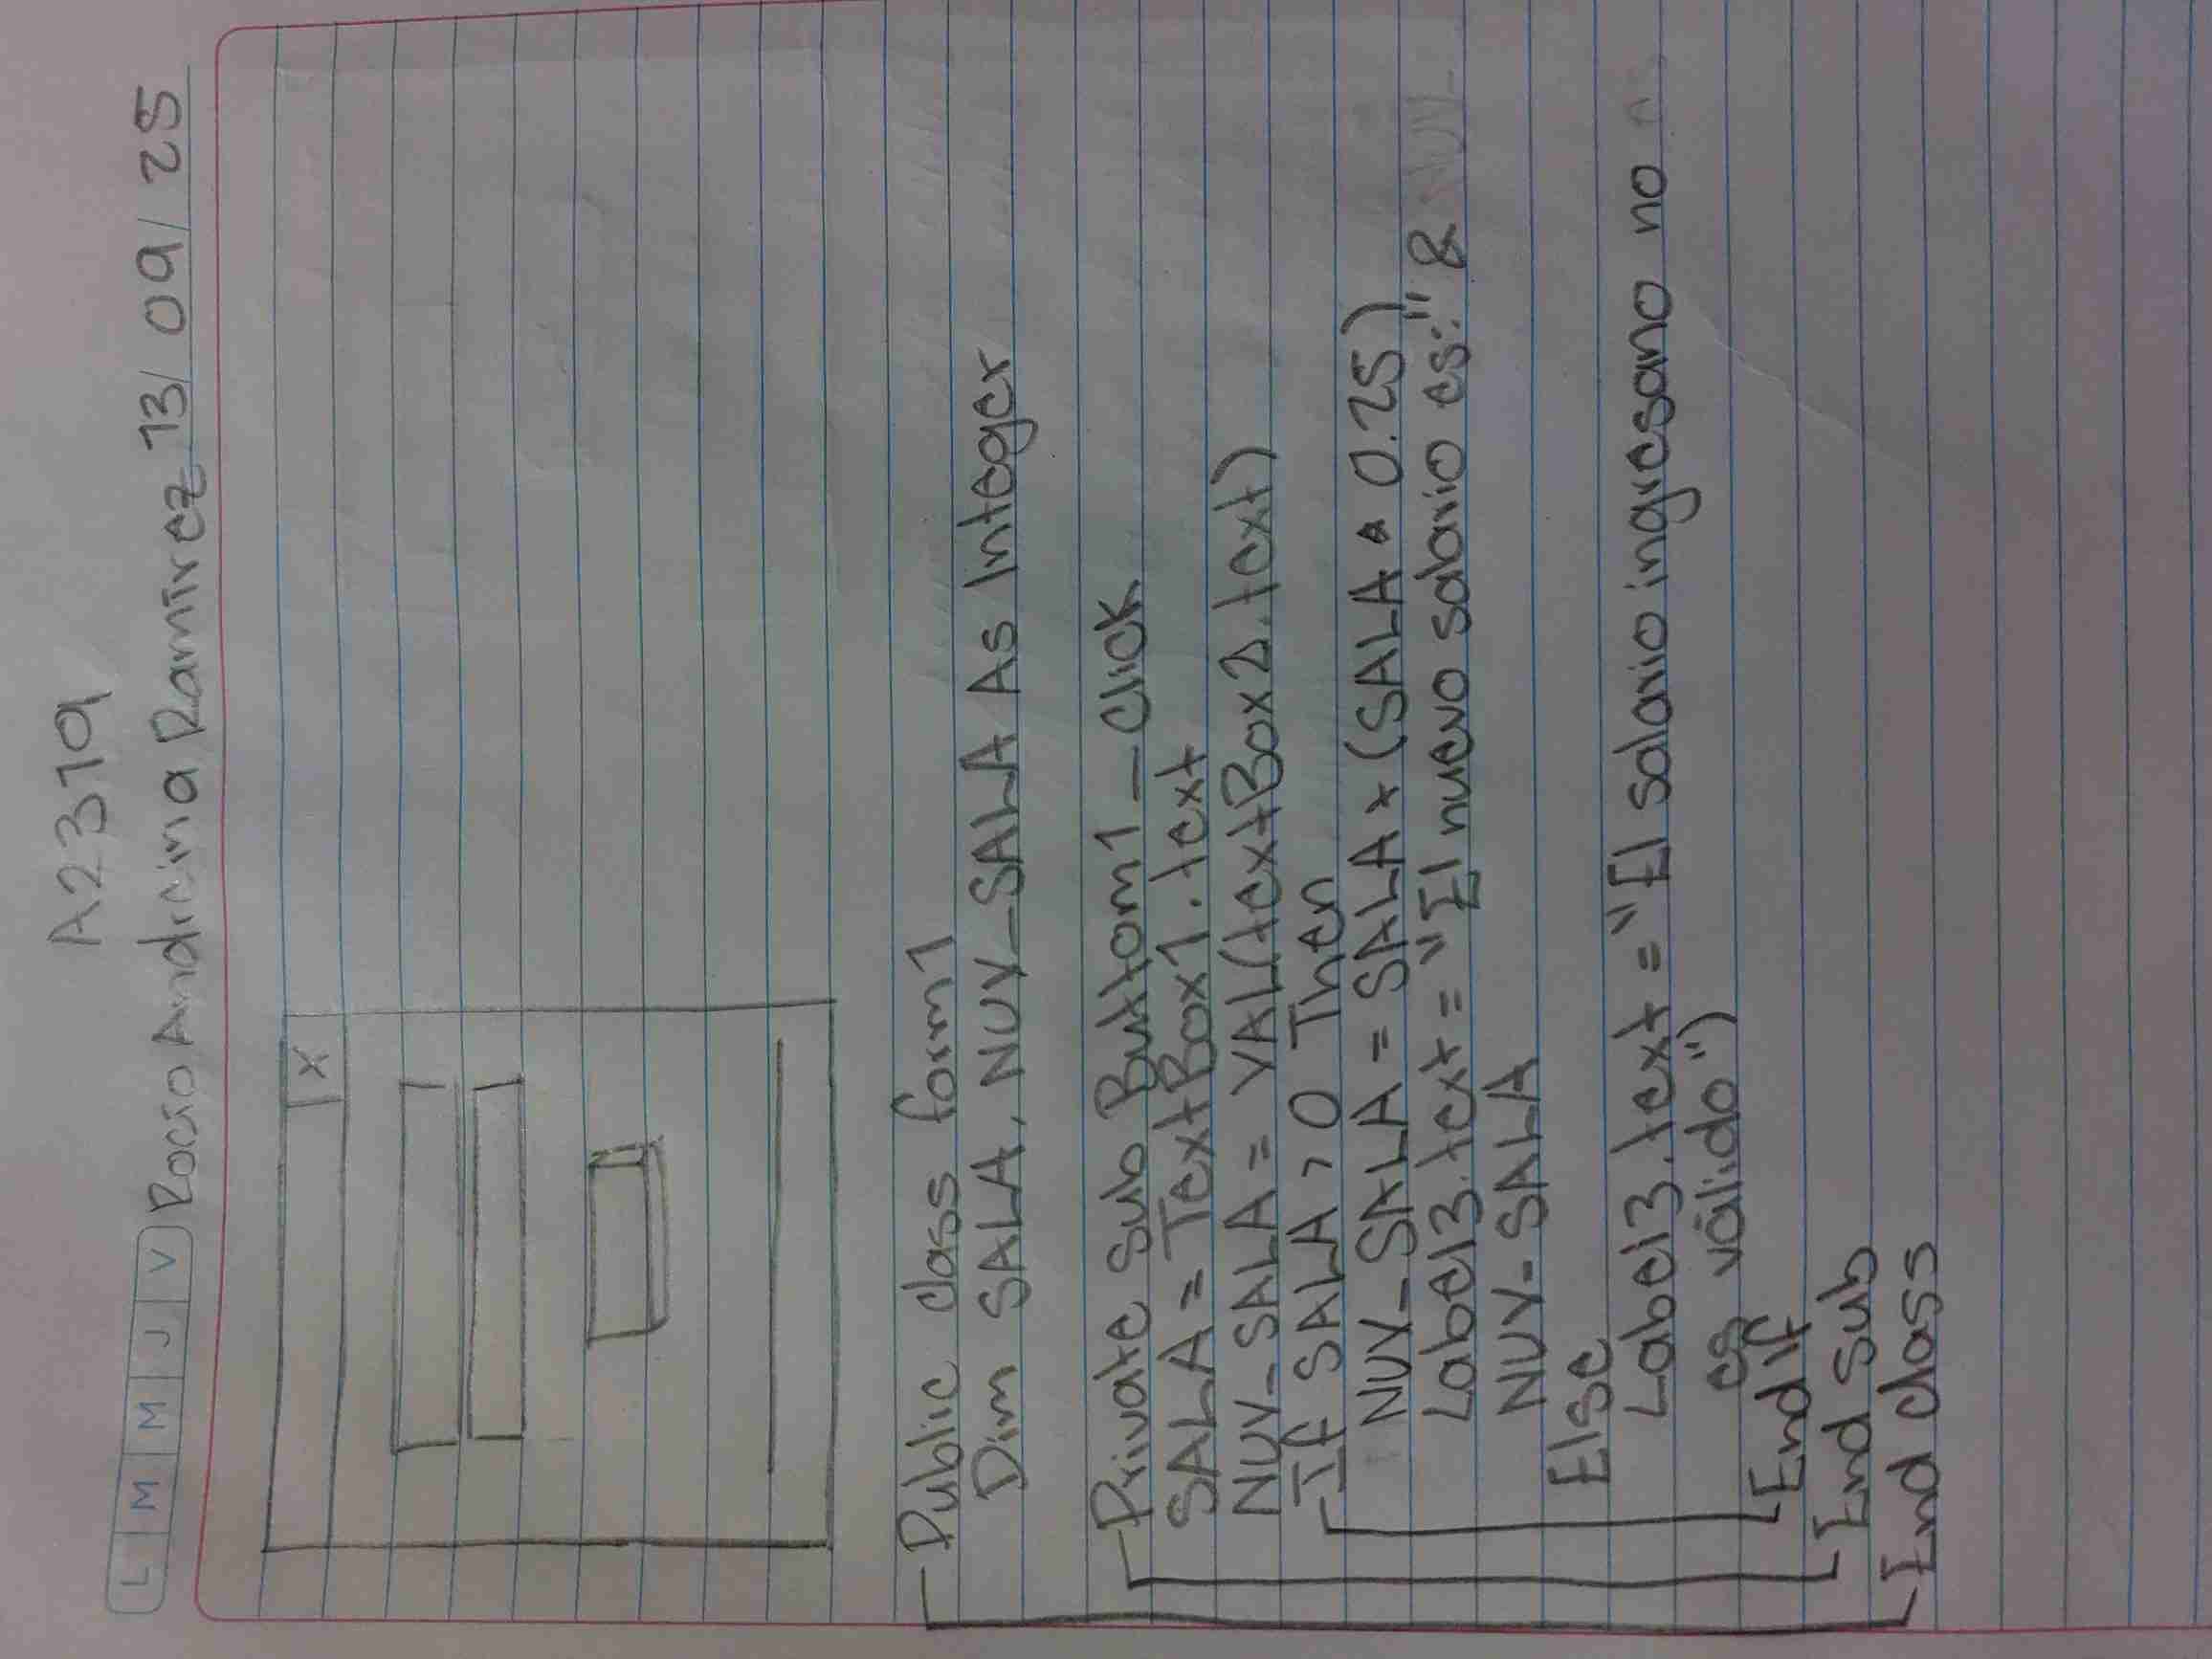 A2319
L M M J V Rocío Andreina Ramírez 13/09/25
X
Public class form1
Dim SALA, NUV_SALA As Integer
Private Sub Buttom1_Click
SALA = TextBox1.text
NUV_SALA = VAL(textBox2.text)
If SALA > 0 Then
NUV_SALA = SALA + (SALA * 0.25)
Label3.text = "El nuevo salario es:" &
NUV_SALA
Else
Label3.text = "El salario ingresano no
es válido")
End If
End Sub
End class